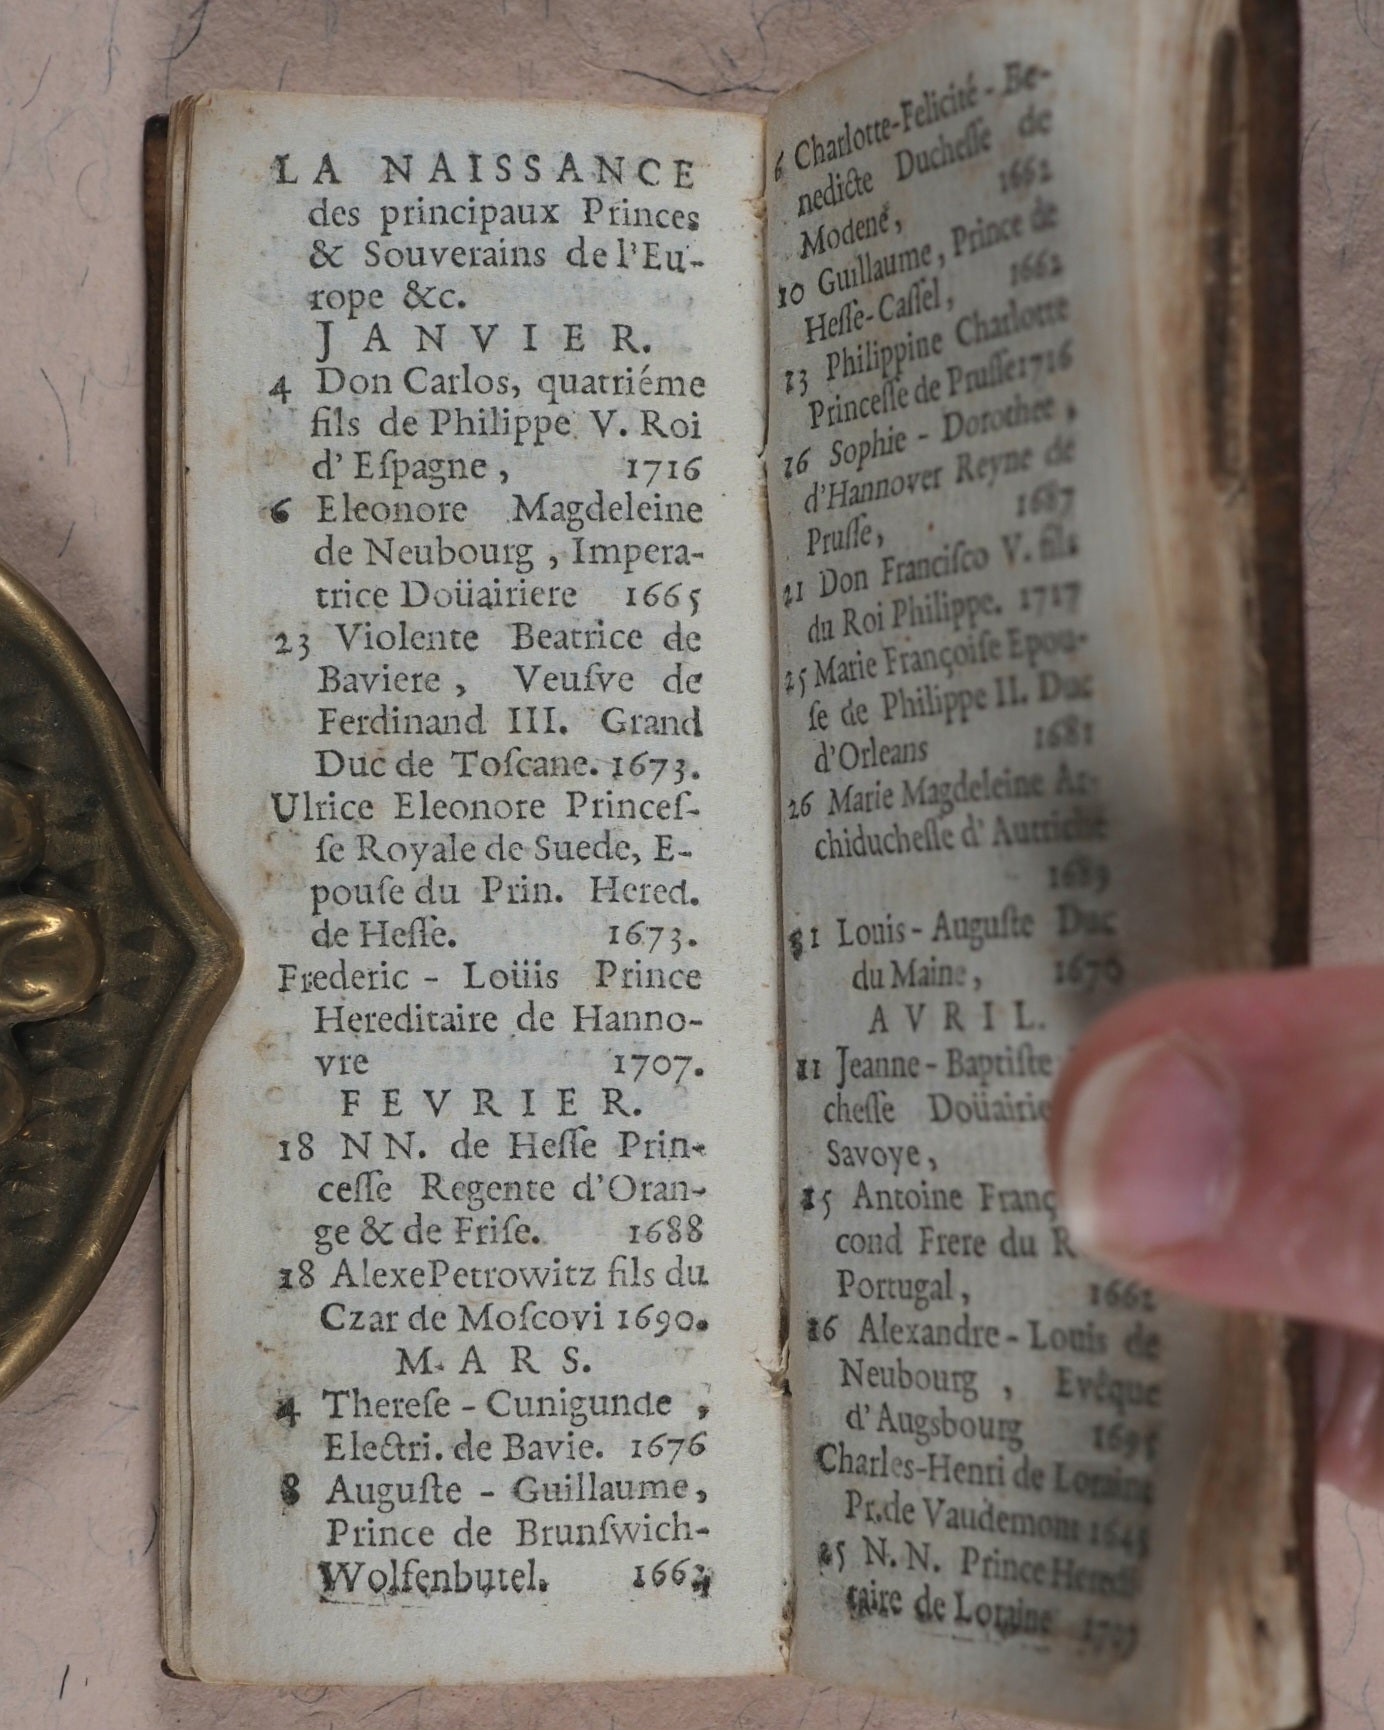 LA NAISSANCE
des principaux Princes
& Souverains de l'Eu-
rope &c.
JANVIER.
4 Don Carlos, quatriéme
fils de Philippe V. Roi
d'Eſpagne, 1716
6 Eleonore Magdeleine
de Neubourg, Impera-
trice Doüairiere 1665
23 Violente Beatrice de
Baviere, Veuſve de
Ferdinand III. Grand
Duc de Toſcane. 1673.
Ulrice Eleonore Princeſ-
ſe Royale de Suede, E-
pouſe du Prin. Hered.
de Heſſe. 1673.
Frederic - Loüis Prince
Hereditaire de Hanno-
vre 1707.
FEVRIER.
18 NN. de Heſſe Prin-
ceſſe Regente d'Oran-
ge & de Friſe. 1688
18 Alexe Petrowitz fils du
Czar de Moſcovi 1690.
MARS.
4 Thereſe - Cunigunde,
Electri. de Bavie. 1676
8 Auguſte - Guillaume,
Prince de Brunſwich-
Wolfenbutel. 1662
6 Charlotte-Felicité - Be-
nedicte Ducheſſe de
Modene, 1662
10 Guillaume, Prince de
Heſſe-Caſſel, 1662
13 Philippine Charlotte
Princeſſe de Pruſſe 1716
16 Sophie - Dorothee,
d'Hannover Reyne de
Pruſſe, 1687
21 Don Franciſco V. fils
du Roi Philippe. 1717
25 Marie Françoiſe Epou-
ſe de Philippe II. Duc
d'Orleans 1681
26 Marie Magdeleine Ar-
chiducheſſe d'Autriche
1689
31 Louis-Auguſte Duc
du Maine, 1670
AVRIL.
11 Jeanne - Baptiſte
cheſſe Doüairie
Savoye,
15 Antoine Franç
cond Frere du R
Portugal, 1662
26 Alexandre-Louis de
Neubourg, Evêque
d'Augsbourg
Charles-Henri de Loraine
Pr. de Vaudemont 1645
25 N. N. Prince Heredi-
taire de Loraine 1707